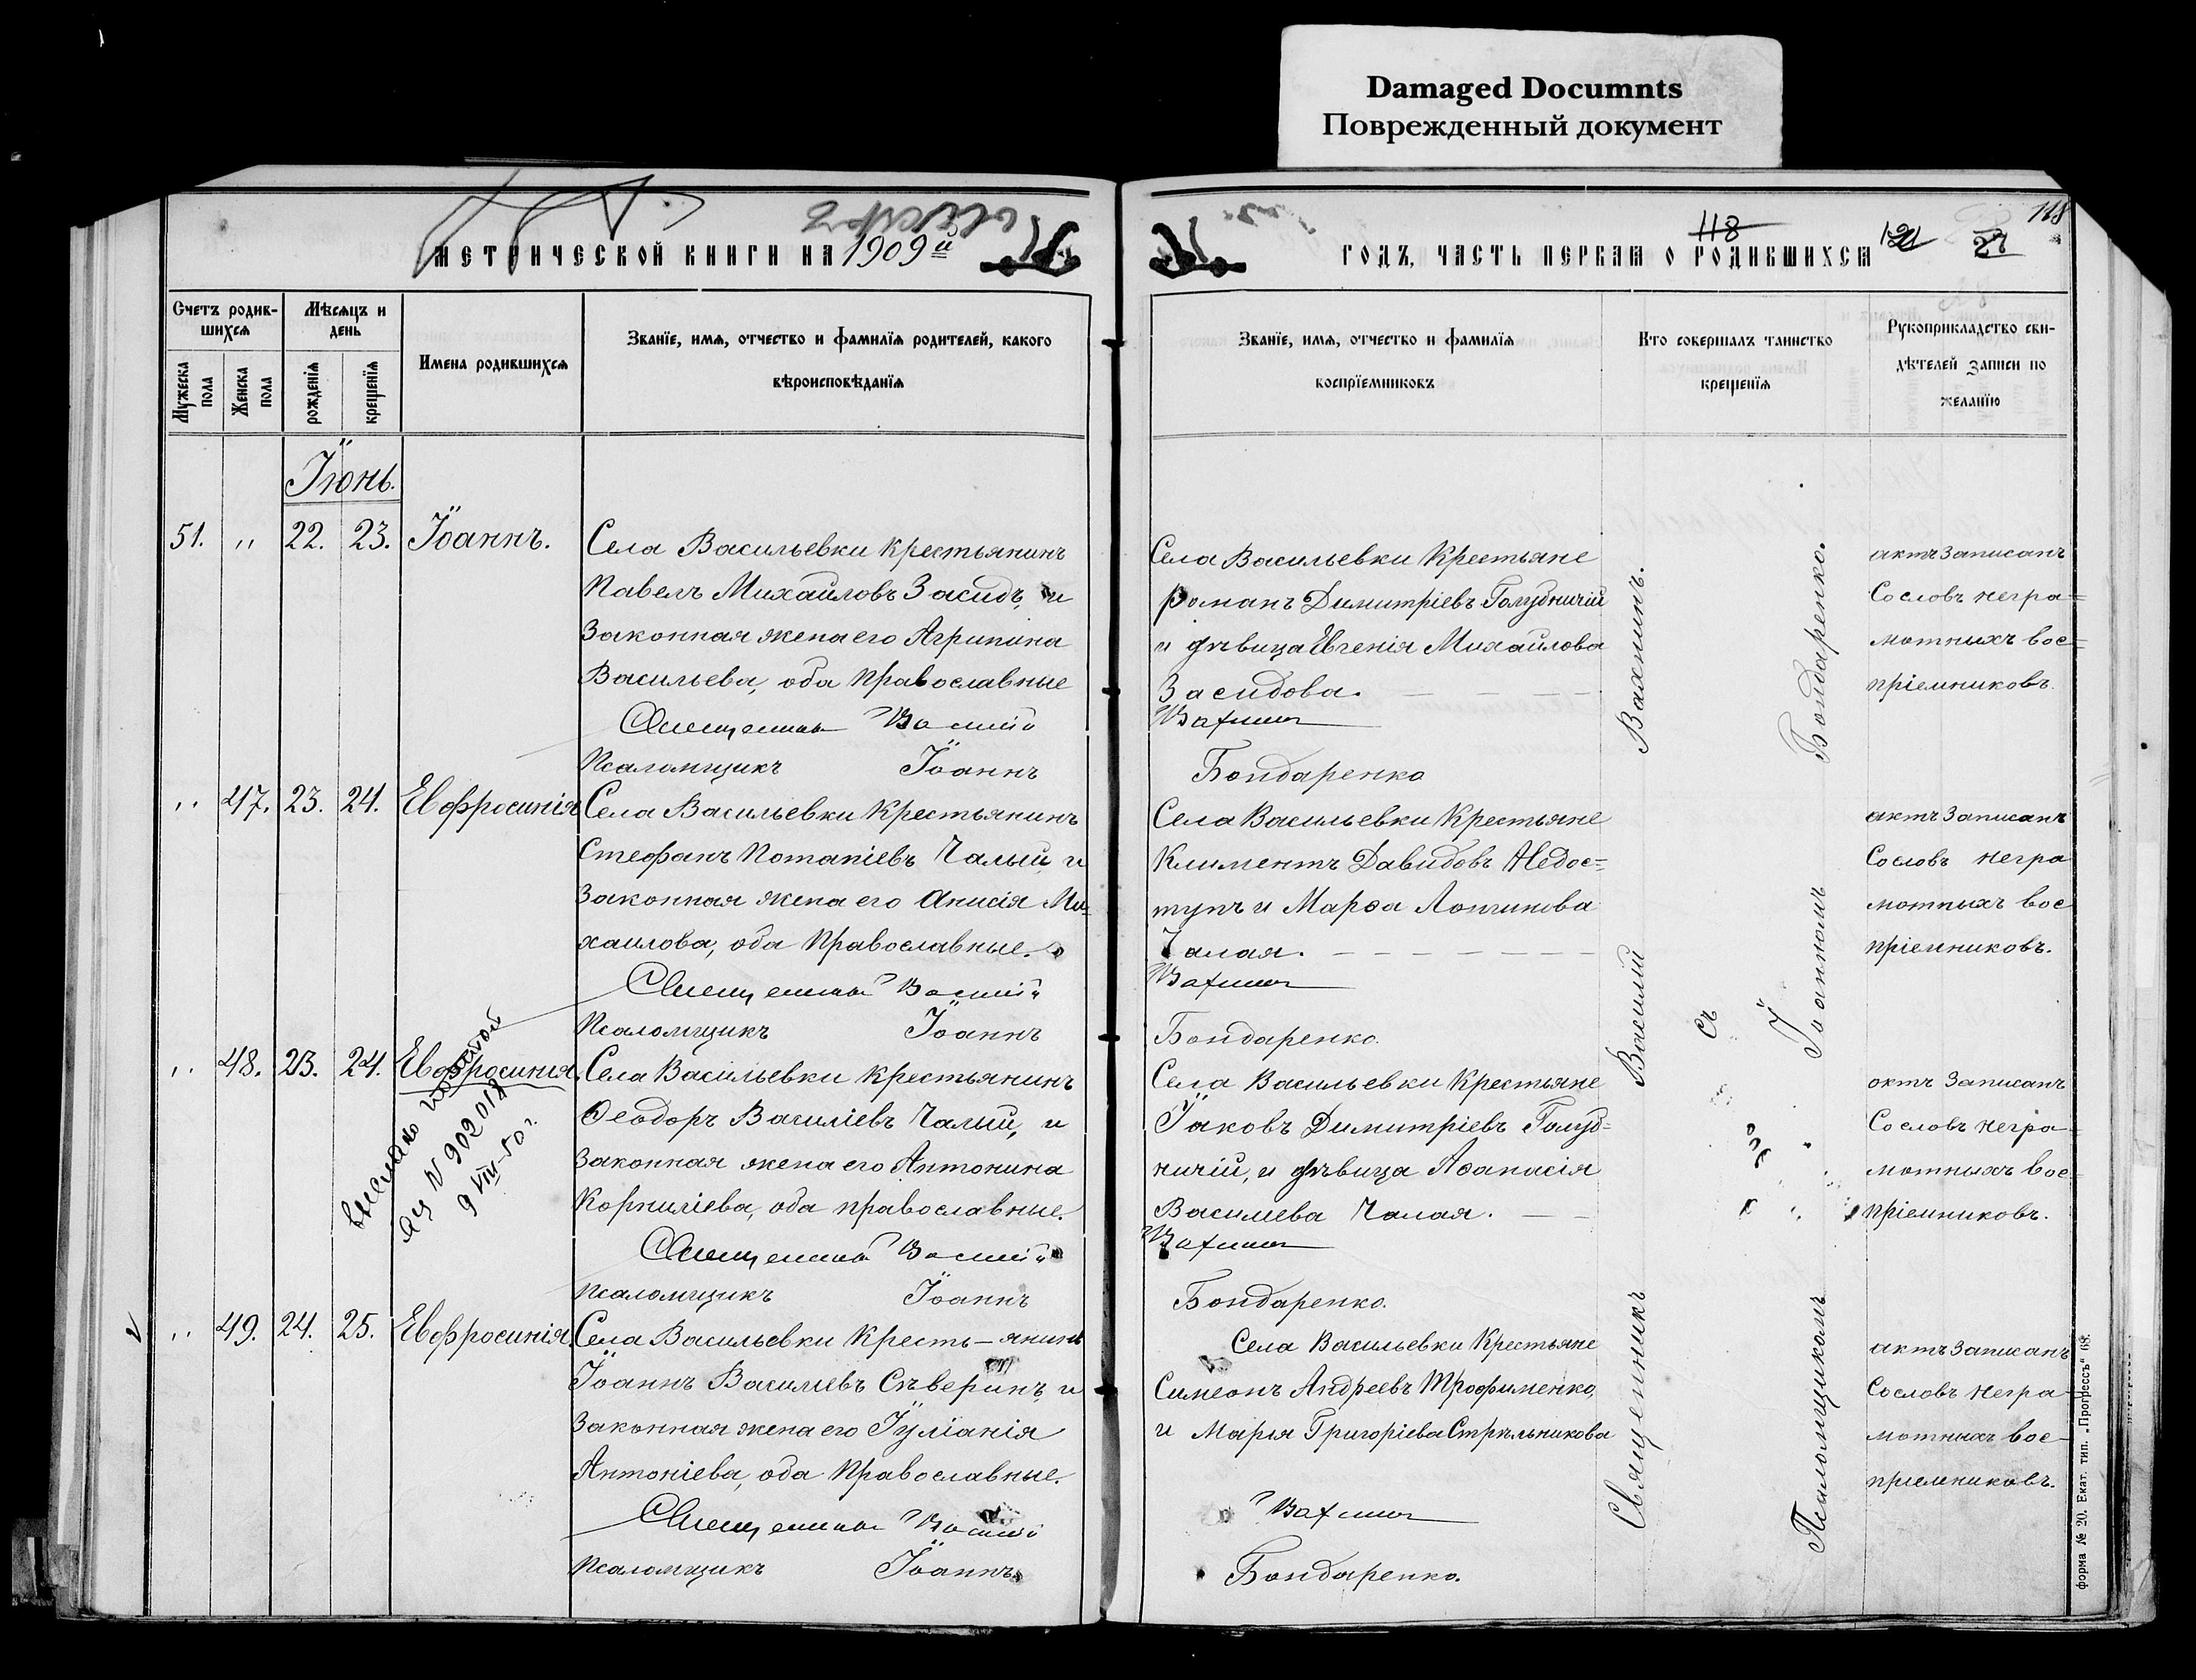 Damaged Documnts
Поврежденный документ
118
МЕТРИЧЕСКОЙ КНИГИ НА 1909й
ГОДЪ, ЧАСТЬ ПЕРВАЯ О РОДИВШИХСЯ
118
27
Счетъ родив-
шихся
Мужеска пола
Женска пола
Мѣсяцъ и
день
рожденія
крещенія
Имена родившихся
Званіе, имя, отчество и фамилія родителей, какого
вѣроисповѣданія
Званіе, имя, отчество и фамилія
воспріемниковъ
Кто совершалъ таинство
крещенія
Рукоприкладство сви-
дѣтелей записи по
желанію
Іюнь.
51. " 22. 23. Іоаннъ.
Села Васильевки крестьянинъ
Павелъ Михайловъ Засидъ, и
Законная жена его Агрипина
Васильева, оба Православные
Священникъ Василій
Псаломщикъ Іоаннъ
Села Васильевки Крестьяне
Романъ Димитріевъ Голубничій
и дѣвица Евгенія Михайлова
Засидова.
Вахнинъ
Бондаренко
актъ Записанъ
Со словъ негра=
мотныхъ вос=
пріемниковъ.
" 47. 23. 24. Евфросинія
Села Васильевки Крестьянинъ
Стефанъ Потапіевъ Чалый, и
Законная жена его Анисія Ми=
хаилова, оба Православные.
Священникъ Василій
Псаломщикъ Іоаннъ
Села Васильевки Крестьяне
Климентъ Давидовъ Недос=
тупъ и Марѳа Логинова
Чалая.
Вахнинъ
Бондаренко.
актъ Записанъ
Со словъ негра
мотныхъ вос
пріемниковъ.
" 48. 23. 24. Евфросинія.
выслано повтой
Яц N 902018
9 VIII-50 г.
Села Васильевки крестьянинъ
Ѳеодоръ Василіевъ Чалый, и
Законная жена его Антонина
Корниліева, оба православные.
Священникъ Василій
Псаломщикъ Іоаннъ
Села Васильевки Крестьяне
Іаковъ Димитріевъ Голуб=
ничій, и дѣвица Аѳанасія
Василиева Чалая.
Вахнинъ
Бондаренко.
октъ Записанъ
Со словъ негра-
мотныхъ вос=
пріемниковъ.
" 49. 24. 25. Евфросинія.
Села Васильевки Кресть-янинъ
Іоаннъ Василиевъ Сѣверинъ, и
Законная жена его Іуліанія
Антоніева, оба Православные.
Священникъ Василій
Псаломщикъ Іоаннъ
Села Васильевки Крестьяне
Симеонъ Андреевъ Трофименко,
и Марія Григоріева Стрѣльникова
Вахнинъ
Бондаренко.
актъ Записанъ
Со словъ негра-
мотныхъ вос-
пріемниковъ.
Священникъ Василій Вахнинъ.
съ
Псаломщикомъ Іоанномъ Бондаренко.
форма № 20. Екат. тип. „Прогрессъ" 68.